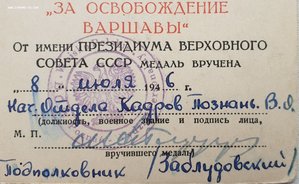 „ЗА ОСВОБОЖДЕНИЕ
ВАРШАВЫ"
ОТ ИМЕНИ ПРЕЗИДИУМА ВЕРХОВНОГО
СОВЕТА СССР МЕДАЛЬ ВРУЧЕНА
„8 " июля 1946 г.
Нач. Отдела Кадров Познань. В.О.
(должность, военное звание и подпись лица,
М. П.
вручившего медаль)
Подполковник /Заблудовский/